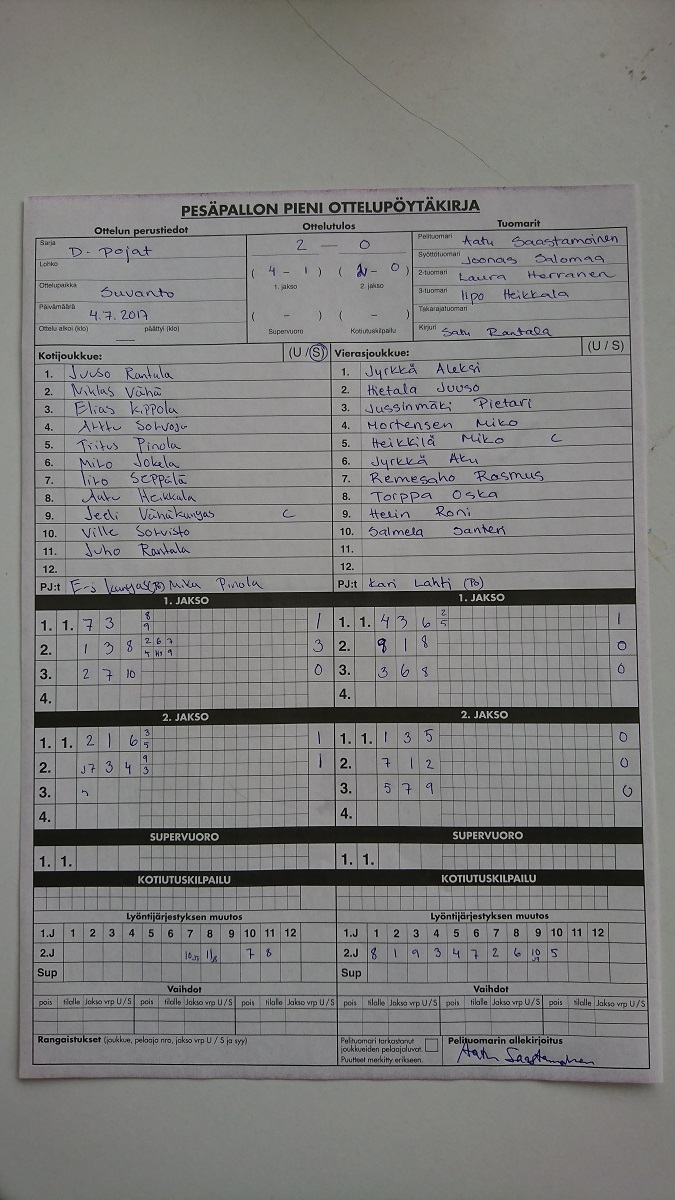 PESÄPALLON PIENI OTTELUPÖYTÄKIRJA
Ottelun perustiedot Ottelutulos Tuomarit
Sarja D-pojat
Lohko
Ottelupaikka Suvanto
Päivämäärä 4.7.2017
Ottelu alkoi (klo) päättyi (klo)
2 — 0
( 4 - 1 ) ( 2 - 0 )
1. jakso 2. jakso
( - ) ( - )
Supervuoro Kotiutuskilpailu
Pelituomari Aatu Saastamoinen
Syöttötuomari Joonas Salomaa
2-tuomari Laura Herranen
3-tuomari Ilpo Heikkala
Takarajatuomari
Kirjuri Satu Rantala
Kotijoukkue: (U / S)
1. Juuso Rantala
2. Niklas Vähä
3. Elias Kippola
4. Arttu
5. Pinola
6. Miko Jokela
7. Iiro Seppälä
8. Aatu Heikkala
9. Jedi Vähäkangas C
10. Ville Sorvisto
11. Juho Rantala
12.
PJ:t Mika Pinola
Vierasjoukkue: (U / S)
1. Jyrkkä Aleksi
2. Hietala Juuso
3. Jussinmäki Pietari
4. Mortensen Miko
5. Heikkilä Miko C
6. Jyrkkä Aku
7. Remesaho Rasmus
8. Torppa Oska
9. Helin Roni
10. Salmela Santeri
11.
12.
PJ:t Kari Lahti (PJ)
1. JAKSO
1. 1. 7 3 8 9 1
2. 1 3 8 2 6 7 9 3
3. 2 7 10 0
4.
1. JAKSO
1. 1. 4 3 6 2 5 1
2. 9 1 8 0
3. 3 6 8 0
4.
2. JAKSO
1. 1. 2 1 6 3 5 1
2. J7 3 4 9 3 1
3.
4.
2. JAKSO
1. 1. 1 3 5 0
2. 7 1 2 0
3. 5 7 9 0
4.
SUPERVUORO
1. 1.
SUPERVUORO
1. 1.
KOTIUTUSKILPAILU
KOTIUTUSKILPAILU
Lyöntijärjestyksen muutos
1.J 1 2 3 4 5 6 7 8 9 10 11 12
2.J 7 8
Sup
Lyöntijärjestyksen muutos
1.J 1 2 3 4 5 6 7 8 9 10 11 12
2.J 8 1 9 3 4 7 2 6 10 5
Sup
Vaihdot
pois tilalle Jakso vrp U / S pois tilalle Jakso vrp U / S pois tilalle Jakso vrp U / S
Vaihdot
pois tilalle Jakso vrp U / S pois tilalle Jakso vrp U / S pois tilalle Jakso vrp U / S
Rangaistukset (joukkue, pelaaja nro, jakso vrp U / S ja syy)
Pelituomari tarkastanut
joukkueiden pelaajaluvat.
Puutteet merkitty erikseen.
Pelituomarin allekirjoitus
Aatu Saastamoinen